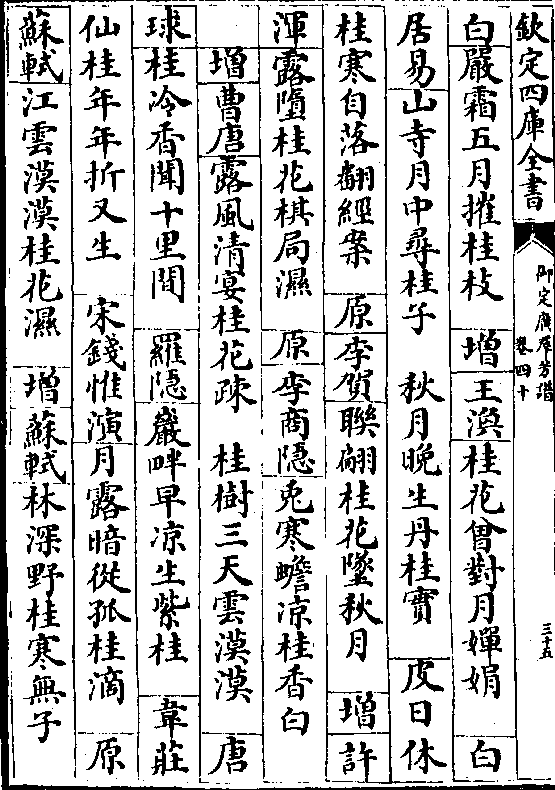 欽定四庫全書
御定廣羣芳譜
卷四十
三十五
白嚴霜五月摧桂枝 增王渙桂花曾對月嬋娟 白
居易山寺月中尋桂子 秋月晚生丹桂實 皮日休
桂寒自落翻經案 原李賀聯翩桂花墜秋月 增許
渾露墮桂花棋局濕 原李商隱兎寒蟾凉桂香白
增曹唐露風清宴桂花疎 桂樹三天雲漠漠 唐
球桂冷香聞十里間 羅隱巖畔早凉生紫桂 韋莊
仙桂年年折又生 宋錢惟演月露暗從孤桂滴 原
蘇軾江雲漠漠桂花濕 增蘇軾林深野桂寒無子